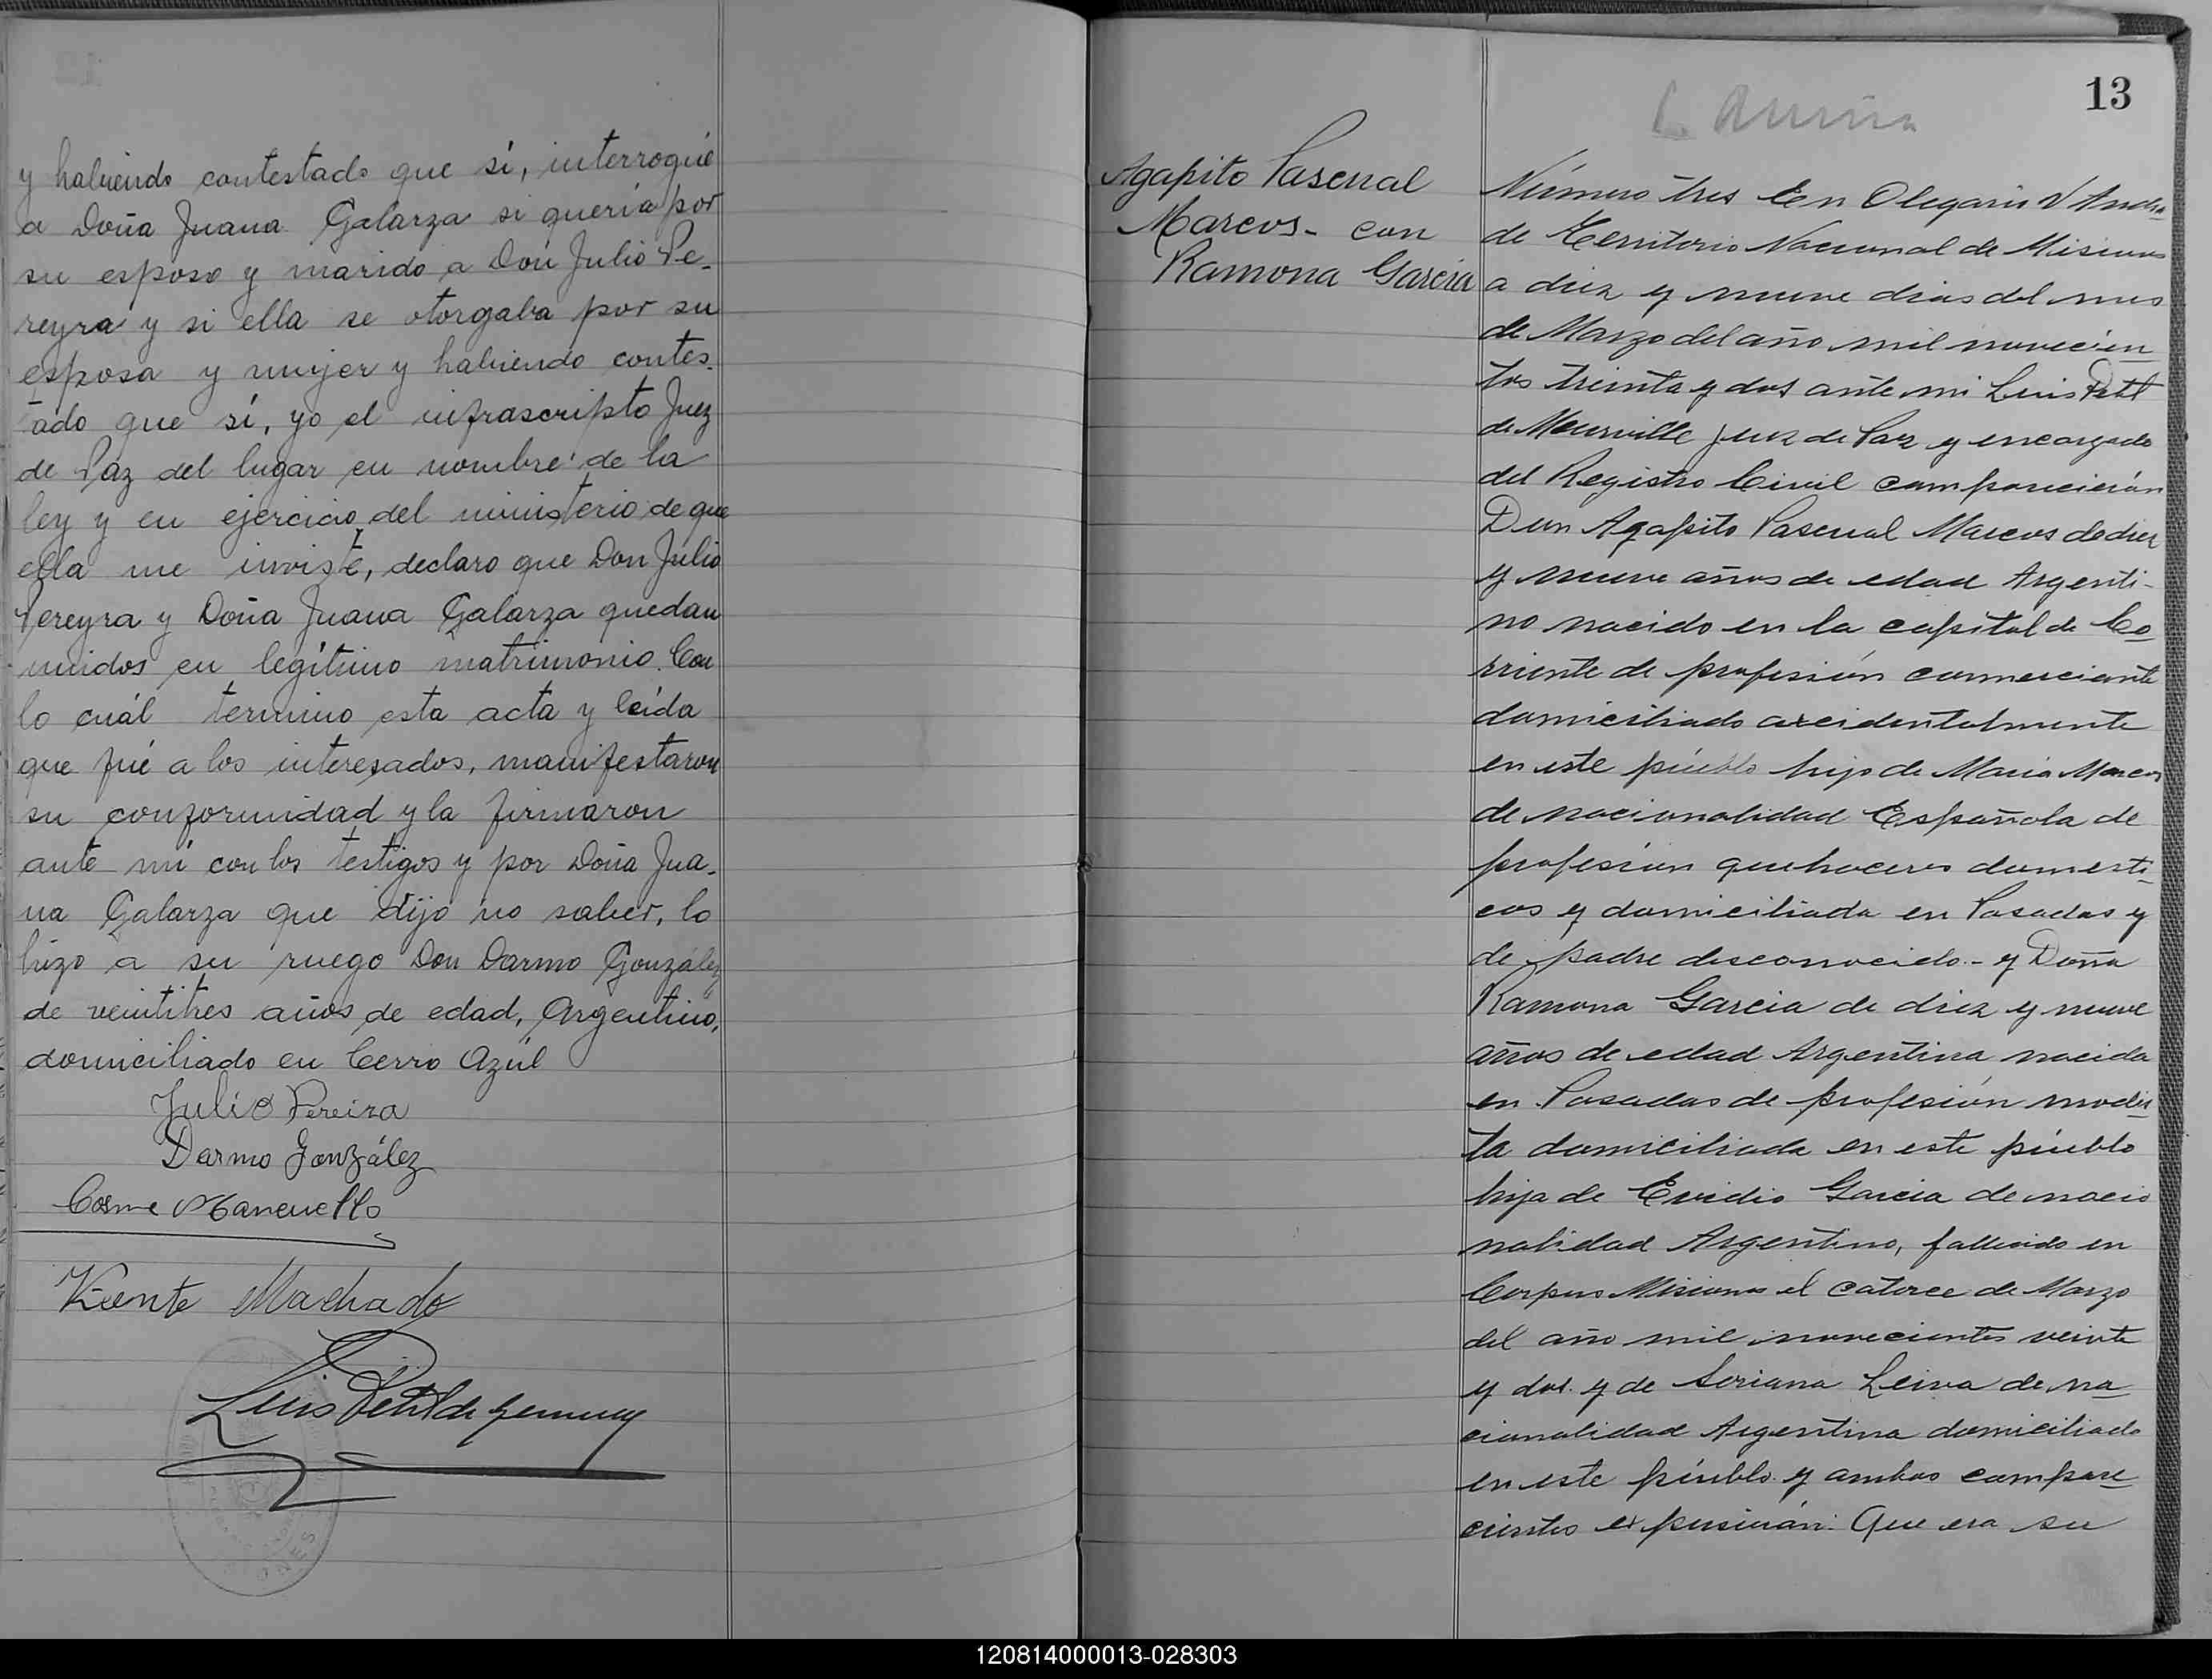 y habiendo contestado que sí, interrogué
a Doña Juana Galarza si quería por
su esposo y marido a Don Julio Pe-
reyra y si ella se otorgaba por su
esposa y mujer y habiendo contes-
tado que sí, yo el infrascripto Juez
de Paz del lugar en nombre de la
ley y en ejercicio del ministerio de que
ella me inviste, declaro que Don Julio
Pereyra y Doña Juana Galarza quedan
unidos en legítimo matrimonio. Con
lo cuál termino esta acta y leída
que fué a los interesados, manifestaron
su conformidad y la firmaron
ante mí con los testigos y por Doña Jua-
na Galarza que dijo no saber, lo
hizo a su ruego Don Darmo González
de veintitres años de edad, Argentino,
domiciliado en Cerro Azúl
Julio Pereira
Darmo González
Cosme Mancuello
Vicente Machado
Luis Petit de
13
Agapito Pascual
Marcos - con
Ramona Garcia
Número tres En Olegario V Andra
de Territorio Nacional de Misiones
a diez y nueve dias del mes
de Marzo del año mil novecien
tos treinta y dos ante mi Luis Petit
de Meurville Juez de Paz y encargado
del Registro Civil comparecieron
Don Agapito Pascual Marcos de diez
y nueve años de edad Argenti-
no nacido en la capital de Co
rriente de profesión comerciante
domiciliado accidentalmente
en este púeblo hijo de Maria Marcos
de nacionalidad Española de
profesion quehaceres domesti-
cos y domiciliada en Posadas y
de padre desconocido - y Doña
Ramona Garcia de diez y nueve
años de edad Argentina nacida
en Posadas de profesión modis
ta domiciliada en este púeblo
hija de Evidio Garcia de nacio
nalidad Argentino, fallecido en
Corpus Misiones el catorce de Marzo
del año mil novecientos veinte
y dos. y de Soriana Leiva de na
cionalidad Argentina domiciliada
en este púeblo y ambos compare
cientes expusieron: Que era su
120814000013-028303